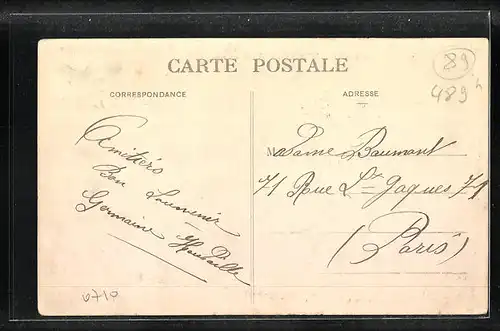 CARTE POSTALE
89
489
CORRESPONDANCE
ADRESSE
Amitiés
Bon Souvenir
Germaine
Madame Baumont
71 Rue St Jaques 71
(Paris)
0710